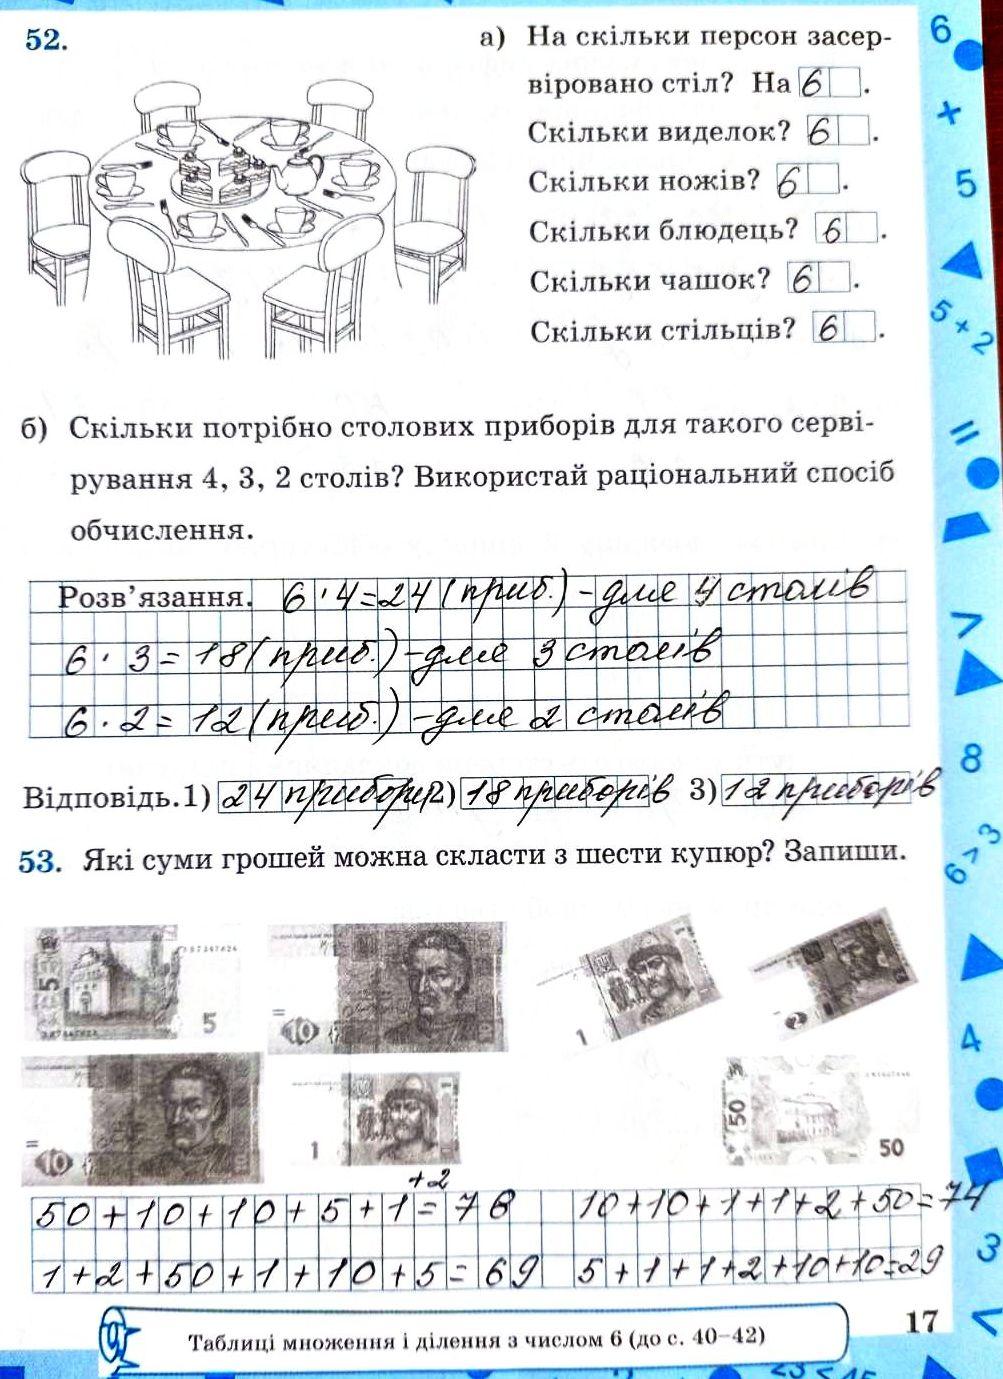 52.
а) На скільки персон засер-
віровано стіл? На 6.
Скільки виделок? 6.
Скільки ножів? 6.
Скільки блюдець? 6.
Скільки чашок? 6.
Скільки стільців? 6.
б) Скільки потрібно столових приборів для такого серві-
рування 4, 3, 2 столів? Використай раціональний спосіб
обчислення.
Розв'язання. 6 · 4 = 24 (приб.) - для 4 столів
6 · 3 = 18 (приб.) - для 3 столів
6 · 2 = 12 (приб.) - для 2 столів
Відповідь. 1) 24 прибори 2) 18 приборів 3) 12 приборів
53. Які суми грошей можна скласти з шести купюр? Запиши.
5 5
10
1
2
10
1
50 50
+2
50 + 10 + 10 + 5 + 1 = 78 10 + 10 + 1 + 1 + 2 + 50 = 74
1 + 2 + 50 + 1 + 10 + 5 = 69 5 + 1 + 1 + 2 + 10 + 10 = 29
Таблиці множення і ділення з числом 6 (до с. 40–42)
17
6
+
5
5 + 2
=
>
8
6 > 3
4
3
<